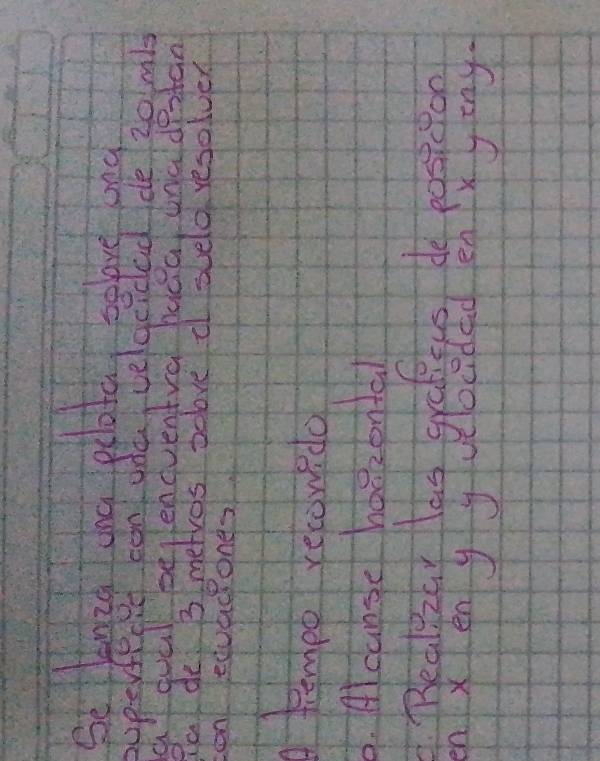 Se lanza una pelota sobre una
superficie con una velocidad de 20 m/s
la cual se encuentra hacia una distan
cia de 3 metros sobre el suelo resolver
con ecuaciones.
A tiempo recorrido
b. Alcanse horizontal
c. Realizar las graficas de posicion
en x en y y velocidad en x y en y.